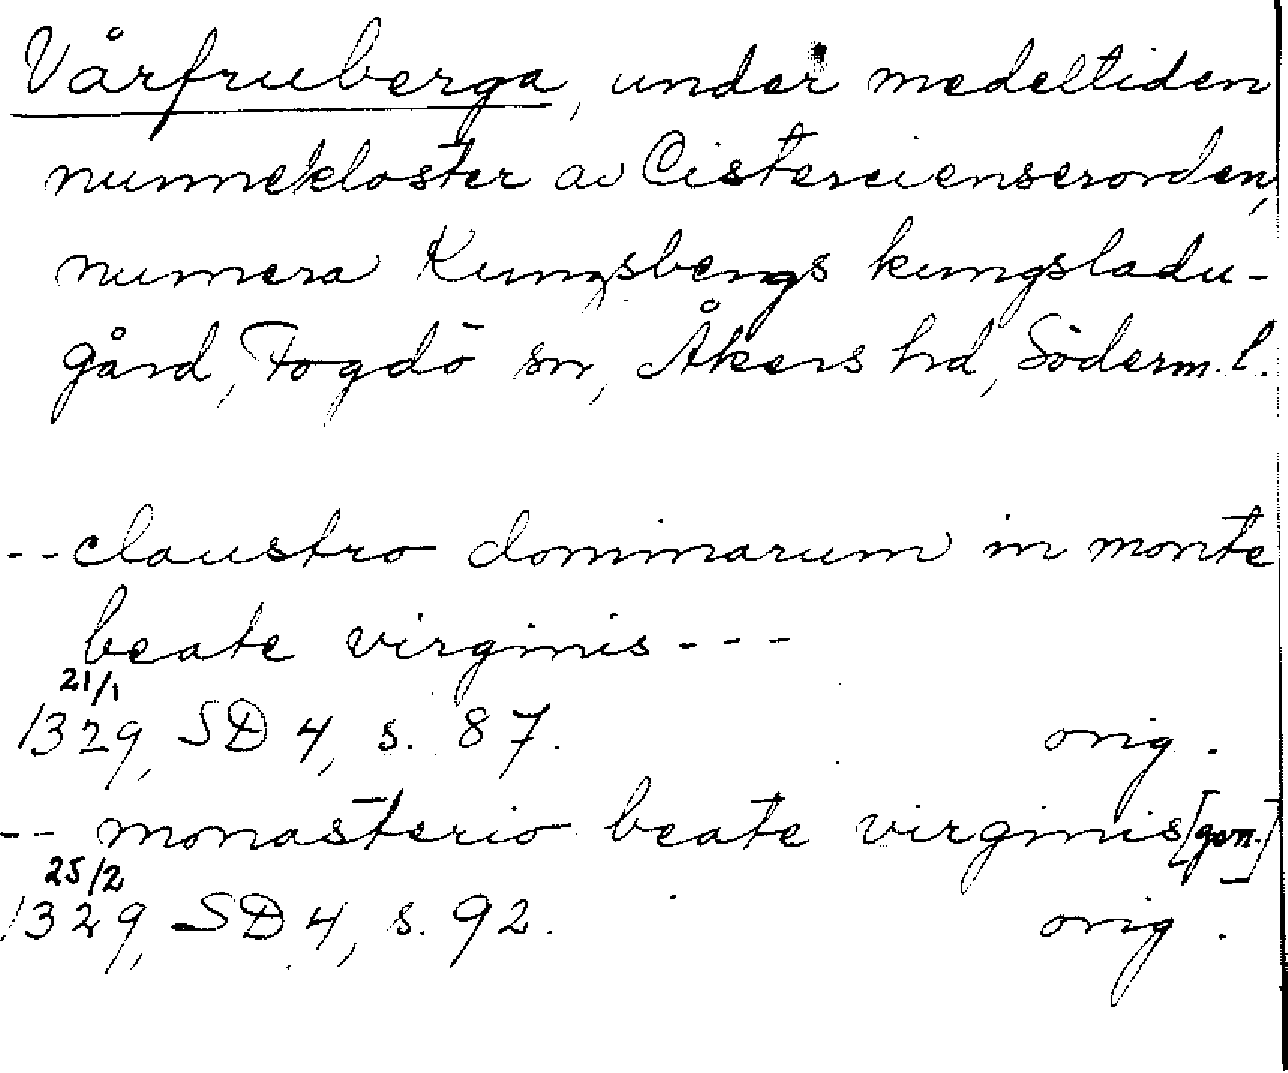 Vårfruberga, under medeltiden
nunnekloster av Cistercienserorden,
numera Kungsbergs kungsladu-
gård, Fogdö sn, Åkers hd, Söderm. l.
-- claustro dominarum in monte
beate virginis ---
21/1
1329, SD 4, s. 87. orig.
-- monasterio beate virginis [gen.]
25/2
1329, SD 4, s. 92. orig.